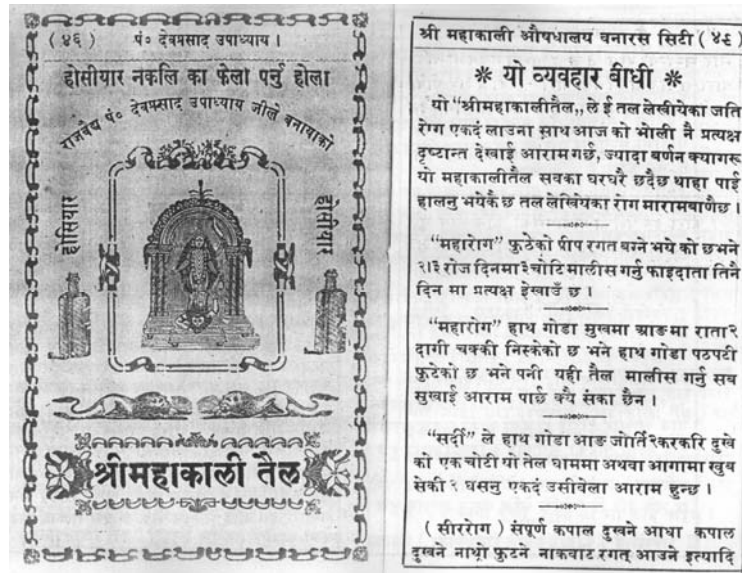 ( ४६ ) पं० देवप्रसाद उपाध्याय ।
होसीयार नकलि का फेला पर्नु होला
राजवैद्य पं० देवप्रसाद उपाध्याय जीले बनायाको
होसियार
होसीयार
श्रीमहाकाली तैल
श्री महाकाली औषधालय बनारस सिटी ( ४९ )
❋ यो व्यवहार बीधी ❋
यो "श्रीमहाकालीतैल,, ले ई तल लेखीयेका जति
रोग एकदं लाउना साथ आज को भोली नै प्रत्यक्ष
दृष्टान्त देखाई आराम गर्छ, ज्यादा बर्णन क्यागरू
यो महाकालीतैल सवका घरघरै छदैछ थाहा पाई
हालनु भयेकैछ तल लेखियेका रोग मारामवाणैछ ।
"महारोग" फुटेको पीप रगत बग्ने भये को छभने
२।३ रोज दिनमा ३ चोटि मालीस गर्नु फाइदाता तिनै
दिन मा प्रत्यक्ष इेखाउँ छ ।
"महारोग" हाथ गोडा मुखमा आङमा राता२
दागी चक्की निस्केको छ भने हाथ गोडा पठपटी
फुटेको छ भने पनी यही तैल मालीस गर्नु सब
सुखाई आराम पार्छ क्यै संका छैन ।
"सर्दी" ले हाथ गोडा आङ जोर्ति २ करकरि दुखे
को एक चोटी यो तेल घाममा अथवा आगामा खुब
सेकी २ घसनु एकदं उसीवेला आराम हुन्छ ।
( सीररोग ) संपूर्ण कपाल दुखने आधा कपाल
दुखने नाथ्रो फुटने नाकवाट रगत् आउने इत्यादि